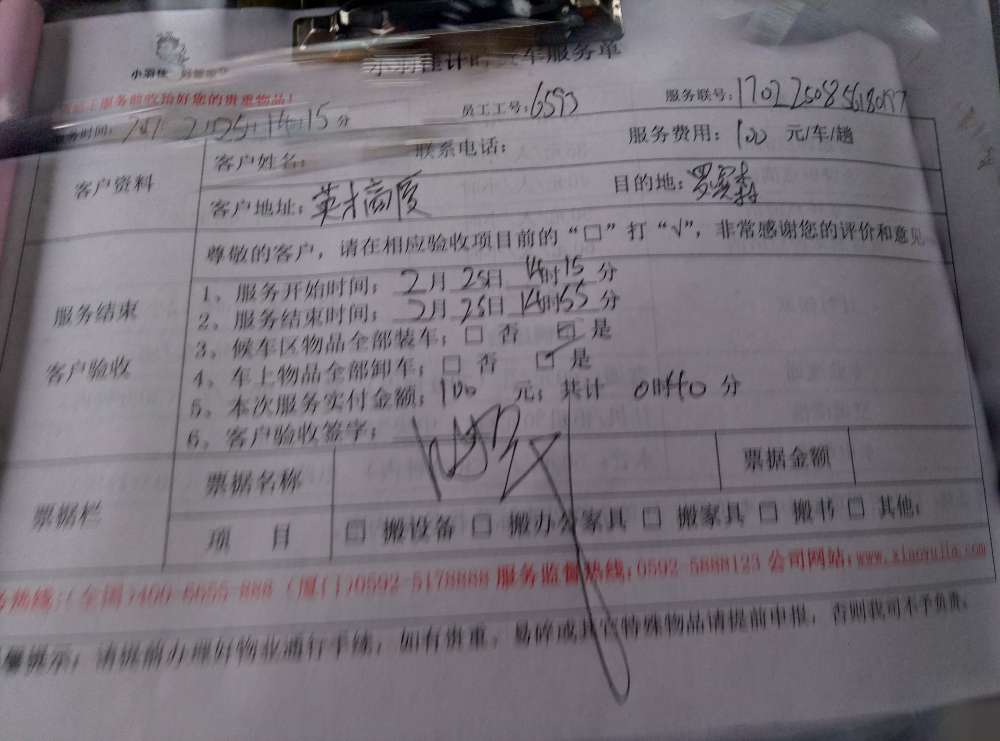 小羽佳
车服务单
服务验收 好您的贵重物品!
员工工号:6593
服务联号:
务时间: 2月25日14时15分
客户资料
客户姓名: 联系电话: 服务费用:100元/车/趟
客户地址:英才商厦 目的地:罗宾森
尊敬的客户,请在相应验收项目前的“□”打“√”,非常感谢您的评价和意见
服务结束
客户验收
1、服务开始时间:2月25日14时15分
2、服务结束时间:2月25日14时55分
3、候车区物品全部装车:□ 否 ☑ 是
4、车上物品全部卸车:□ 否 ☑ 是
5、本次服务实付金额:100元;共计0时40分
6、客户验收签字:
票据栏
票据名称 票据金额
项 目 □ 搬设备 □ 搬办公家具 □ 搬家具 □ 搬书 □ 其他:
务热线:(全国)400-6655-888 (厦门)0592-5178888 服务监督热线:0592-5888123 公司网站:www.xiaoyujia.com
馨提示:请提前办理好物业通行手续,如有贵重、易碎或其它特殊物品请提前申报,否则我司不予负责。